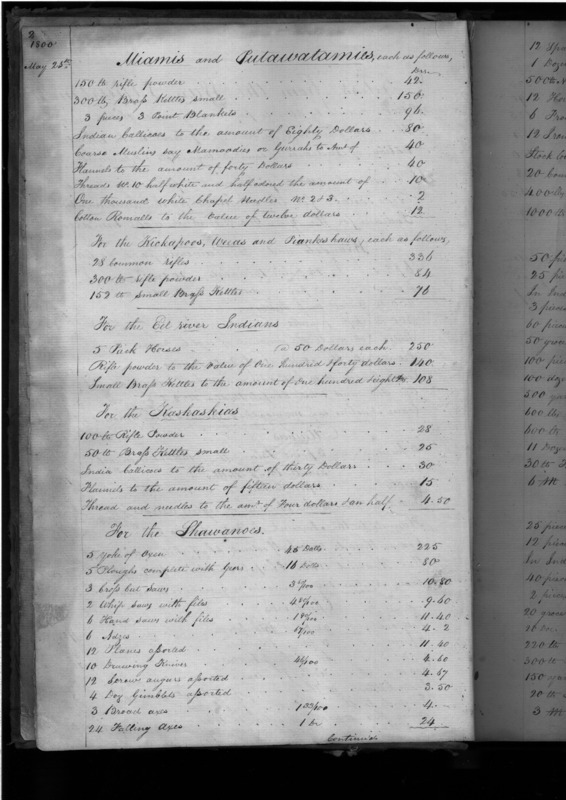 2
1800
May 25th Miamis and Putawatamies, each as follows,
150 lb rifle powder 42.
300 lb Brass Kettles small 150
3 pieces 3 Point Blankets 96.
Indian Callicoes to the amount of Eighty Dollars 80
Coarse Muslins say Mamoodies or Gurrahs to Amt of 40
Flannels to the amount of forty Dollars 40
Threads half white and half colored the amount of 10
One thousand white Chapel Needles No. 2 & 3 2
Cotton Romalls to the value of twelve dollars 12
For the Kickapoos, Weeas and Piankeshaws, each as follows,
28 Common rifles 336
300 lb rifle powder 84
152 lb small Brass Kettles 76
For the Eel river Indians
5 Pack Horses @ 50 Dollars each 250
Rifle powder to the value of One hundred & forty dollars 140
Small Brass Kettles to the amount of One hundred & eight Drs. 108
For the Kaskaskias
100 lb Rifle Powder 28
50 lb Brass Kettles small 25
India Callicoes to the amount of thirty Dollars 30
Flannels to the amount of fifteen dollars 15
Thread and needles to the amt of Four dollars & an half 4.50
For the Shawanoes.
5 Yoke of Oxen 45 Dolls 225
5 Ploughs complete with Gears 16 Dolls 80
3 Cross cut saws 3 60/100 10.80
2 Whip saws with files 9.60
6 Hand saws with files 1 90/100 11.40
6 Adzes 4.2
12 Planes assorted 11.40
10 Drawing Knives 46/100 4.60
12 Screw augurs assorted 4.67
4 Doz Gimblets assorted 3.50
3 Broad axes 1 33/100 4.
24 Falling Axes 1 Dr 24
Continued
12
1 Doz
6
12
20
1000
50
25
In Ind
3 pieces
60 pieces
50 gro
100
500
600 lbs
600
11 Dozen
30 lb
6 M
25 pieces
12 pieces
In Ind
40
2 pieces
20 groce
220 lb
300 lb
150
20 lb
3 M